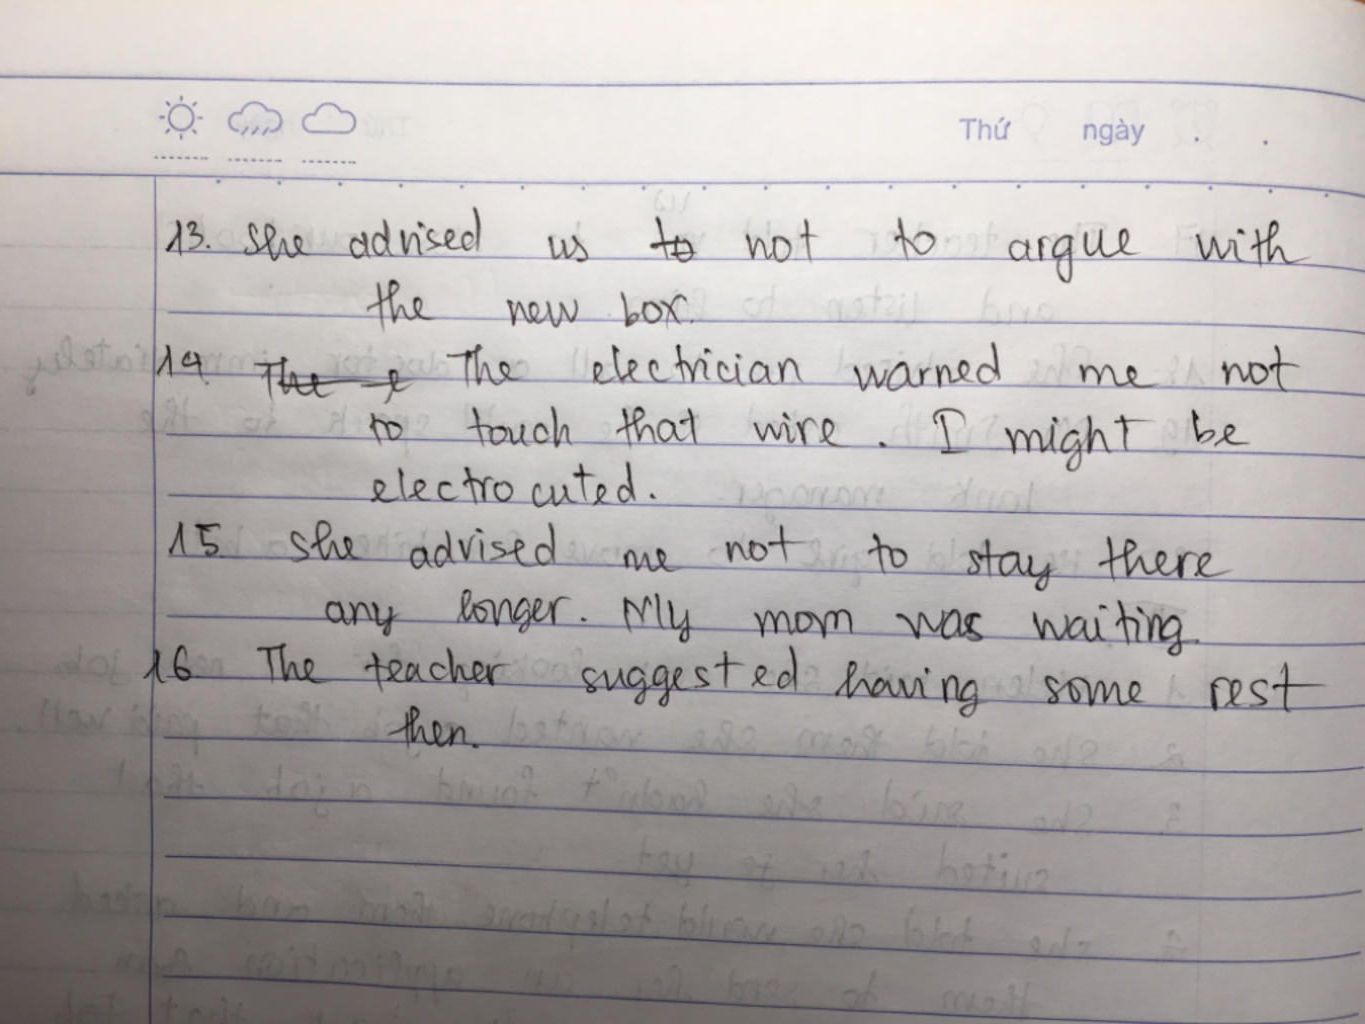 Thứ ngày . .
13. She advised us to not to argue with
the new box.
14 The e The electrician warned me not
to touch that wire. I might be
electrocuted.
15 She advised me not to stay there
any longer. My mom was waiting.
16 The teacher suggested having some rest
then.